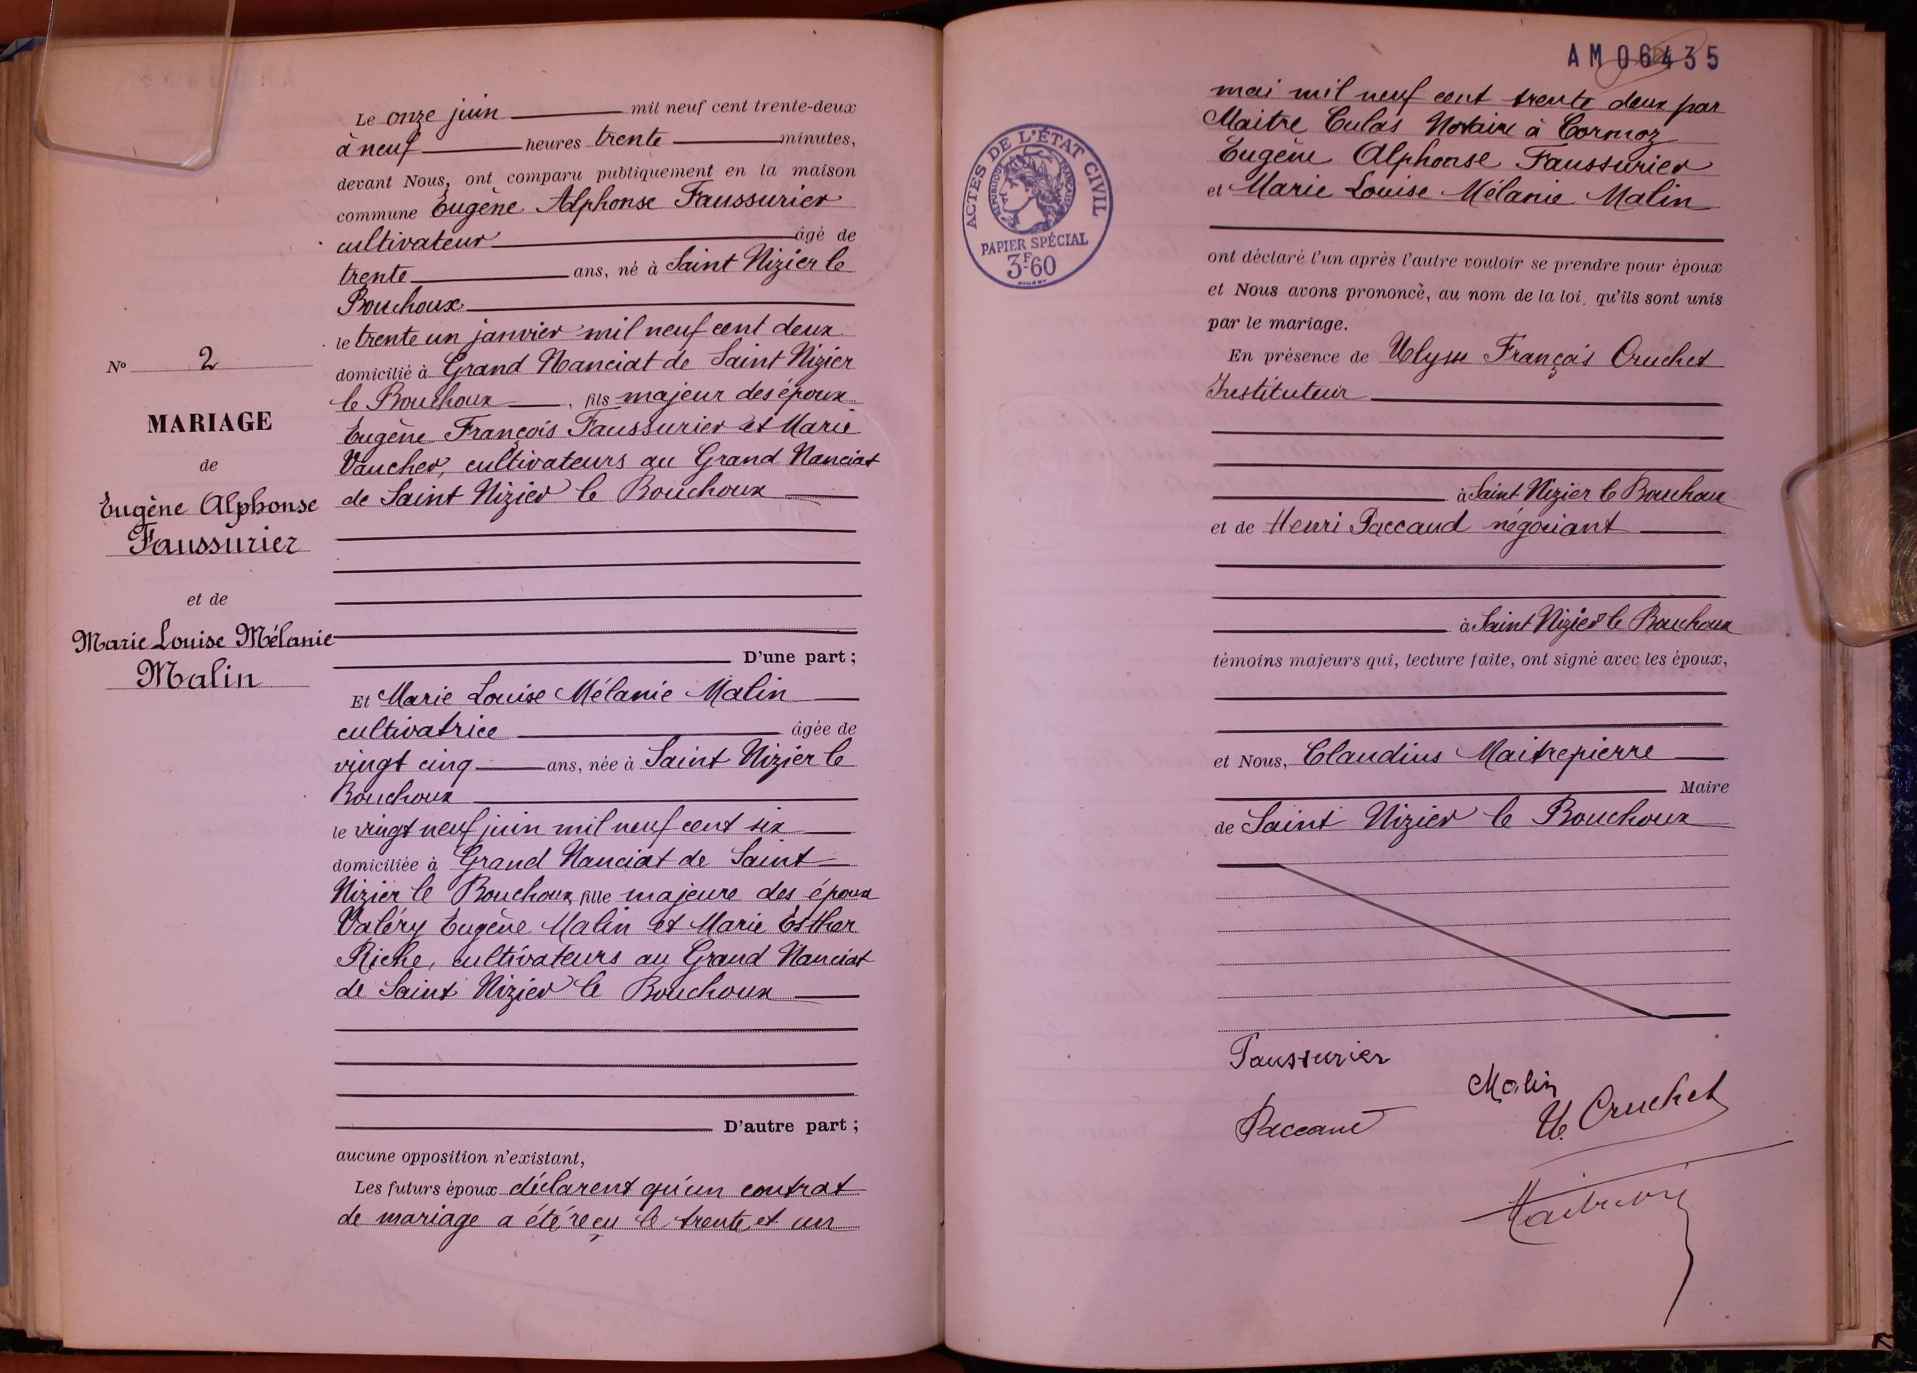 Le onze juin mil neuf cent trente-deux
à neuf heures trente minutes,
devant Nous, ont comparu publiquement en la maison
commune Eugène Alphonse Faussurier
cultivateur âgé de
trente ans, né à Saint Nizier le
Bouchoux
le trente un janvier mil neuf cent deux
domicilié à Grand Nanciat de Saint Nizier
le Bouchoux, fils majeur des époux
Eugène François Faussurier et Marie
Vaucher, cultivateurs au Grand Nanciat
de Saint Nizier le Bouchoux
D'une part ;
No 2
MARIAGE
de
Eugène Alphonse
Faussurier
et de
Marie Louise Mélanie
Malin
Et Marie Louise Mélanie Malin
cultivatrice âgée de
vingt cinq ans, née à Saint Nizier le
Bouchoux
le vingt neuf juin mil neuf cent six
domiciliée à Grand Nanciat de Saint
Nizier le Bouchoux fille majeure des époux
Valéry Eugène Malin et Marie Esther
Riche, cultivateurs au Grand Nanciat
de Saint Nizier le Bouchoux
D'autre part ;
aucune opposition n'existant,
Les futurs époux déclarent qu'un contrat
de mariage a été reçu le trente et un
AM06435
ACTES DE L'ÉTAT CIVIL
RÉPUBLIQUE FRANÇAISE
PAPIER SPÉCIAL
3F60
mai mil neuf cent trente deux par
Maitre Culas Notaire à Cormoz
Eugène Alphonse Faussurier
et Marie Louise Mélanie Malin
ont déclaré l'un après l'autre vouloir se prendre pour époux
et Nous avons prononcé, au nom de la loi, qu'ils sont unis
par le mariage.
En présence de Ulysse François Cruchet
Instituteur
à Saint Nizier le Bouchoux
et de Henri Paccaud négociant
à Saint Nizier le Bouchoux
témoins majeurs qui, lecture faite, ont signé avec les époux,
et Nous, Claudius Maitrepierre
Maire
de Saint Nizier le Bouchoux
Faussurier
Malin
Paccaud
U. Cruchet